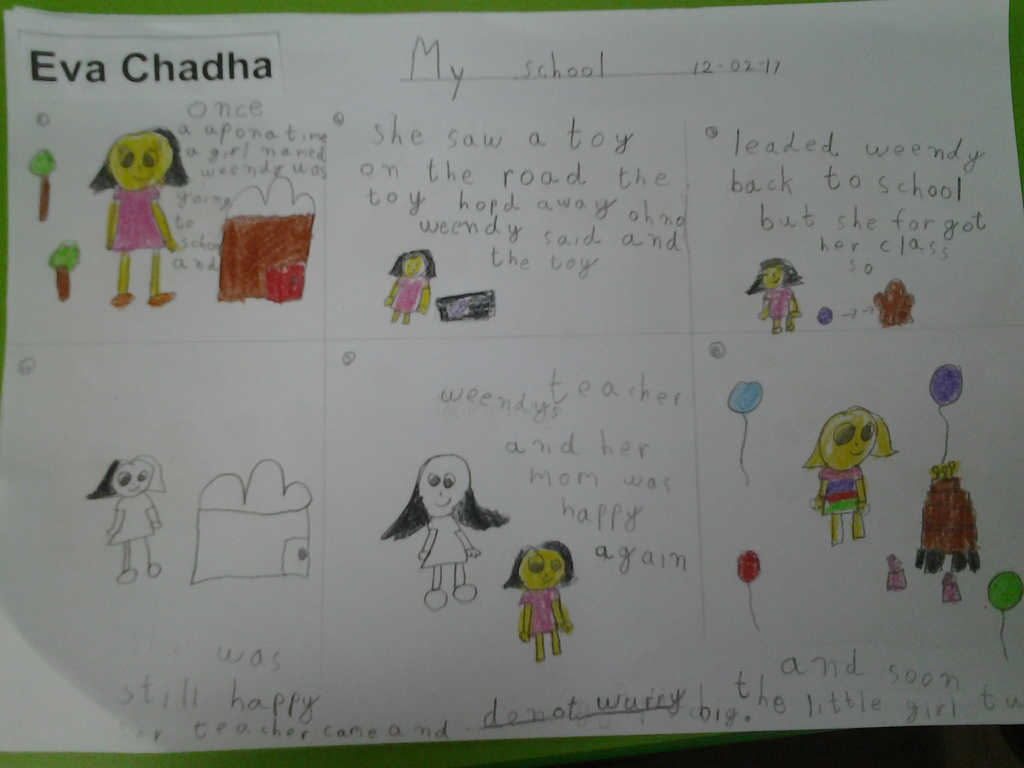 Eva Chadha
My school 12-02-17
once
a aponatime
a girl named
weendy was
going
to
school
and
she saw a toy
on the road the
toy hopd away ohno
weendy said and
the toy
leaded weendy
back to school
but she forgot
her class
so
was
still happy
teacher came and
weendys teacher
and her
mom was
happy
again
do not wurry
and soon
the little girl
big.